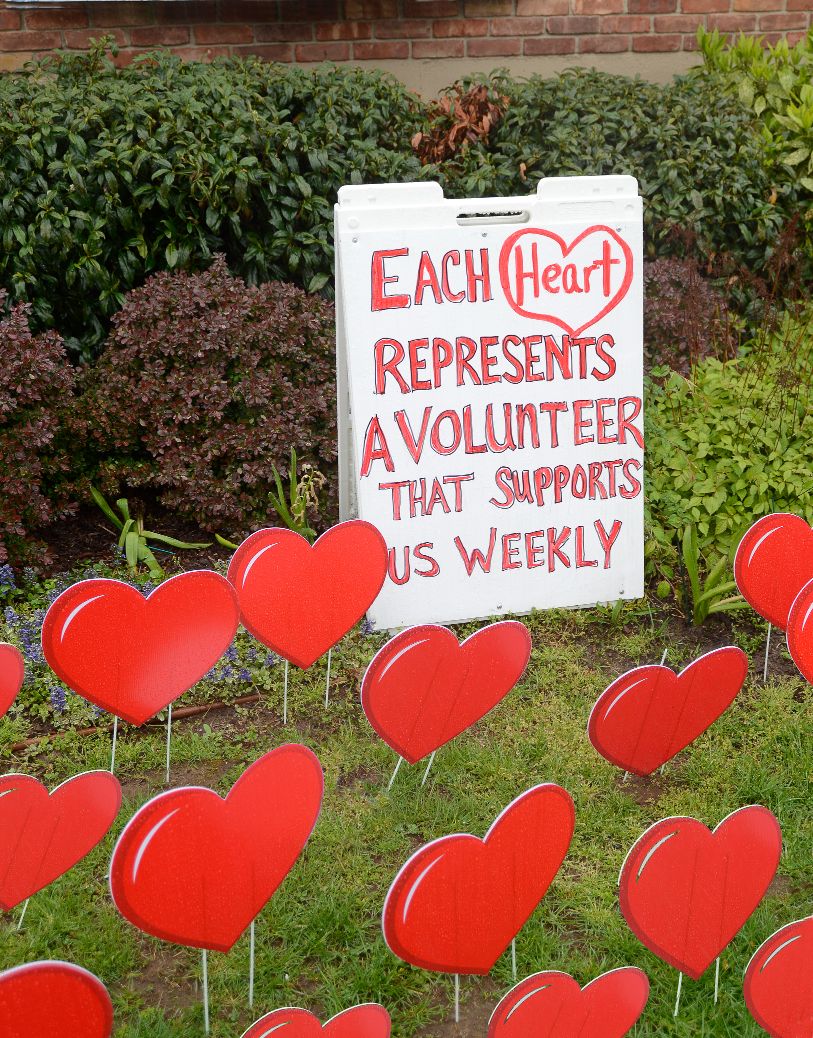 EACH Heart
REPRESENTS
A VOLUNTEER
THAT SUPPORTS
US WEEKLY